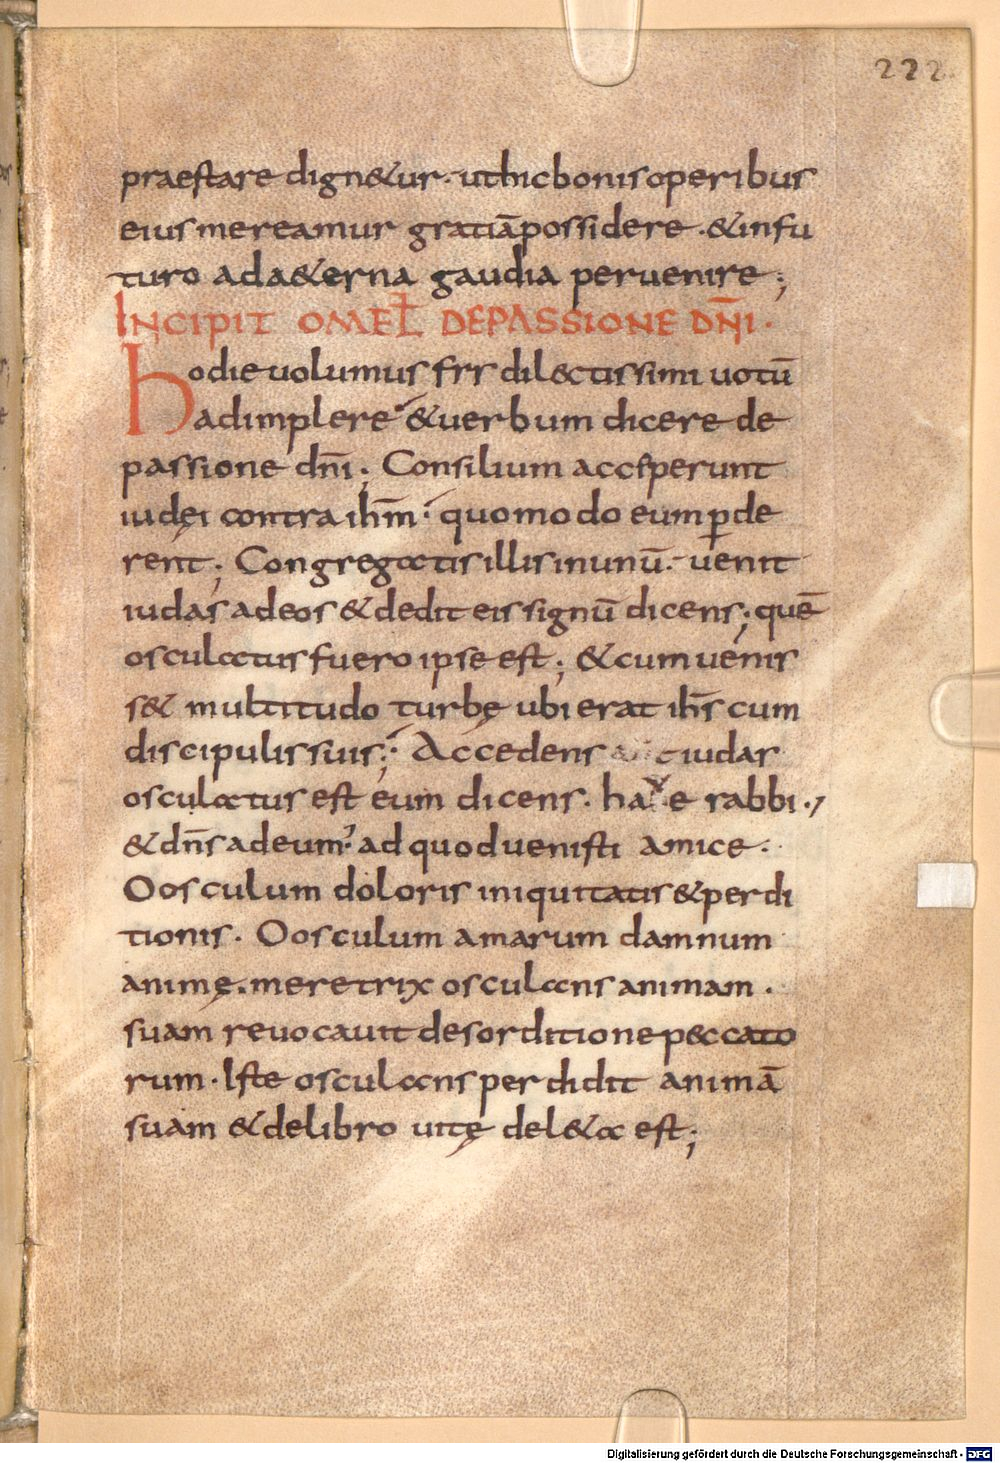 222
praestare dign&ur· ut hic bonis operibus
eius mereamur gratiā possidere· & in fu
turo ad a&erna gaudia peruenire;
INCIPIT OMEL̄ DE PASSIONE DN̄I·
hodie uolumus frr dilectissimi uotū
adimplere & uerbum dicere de
passione dn̄i; Consilium acceperunt
iudęi contra ihm̄· quomodo eum ꝑde
rent; Congregatis illis in unū· uenit
iudas ad eos & dedit eis signū dicens; quē
osculatus fuero ipse est; & cum uenis
s& multitudo turbę ubi erat ihs̄ cum
discipulis suis; Accedens iudas
osculatus est eum dicens· haue rabbi·
& dn̄s ad eum· ad quod uenisti amice·
O osculum doloris iniquitatis & perdi
tionis· O osculum amarum damnum
animę· meretrix osculans animam·
suam reuocauit de sorditione peccato
rum· Iste osculans perdidit animā
suam & de libro uitę del&a est;
Digitalisierung gefördert durch die Deutsche Forschungsgemeinschaft - DFG